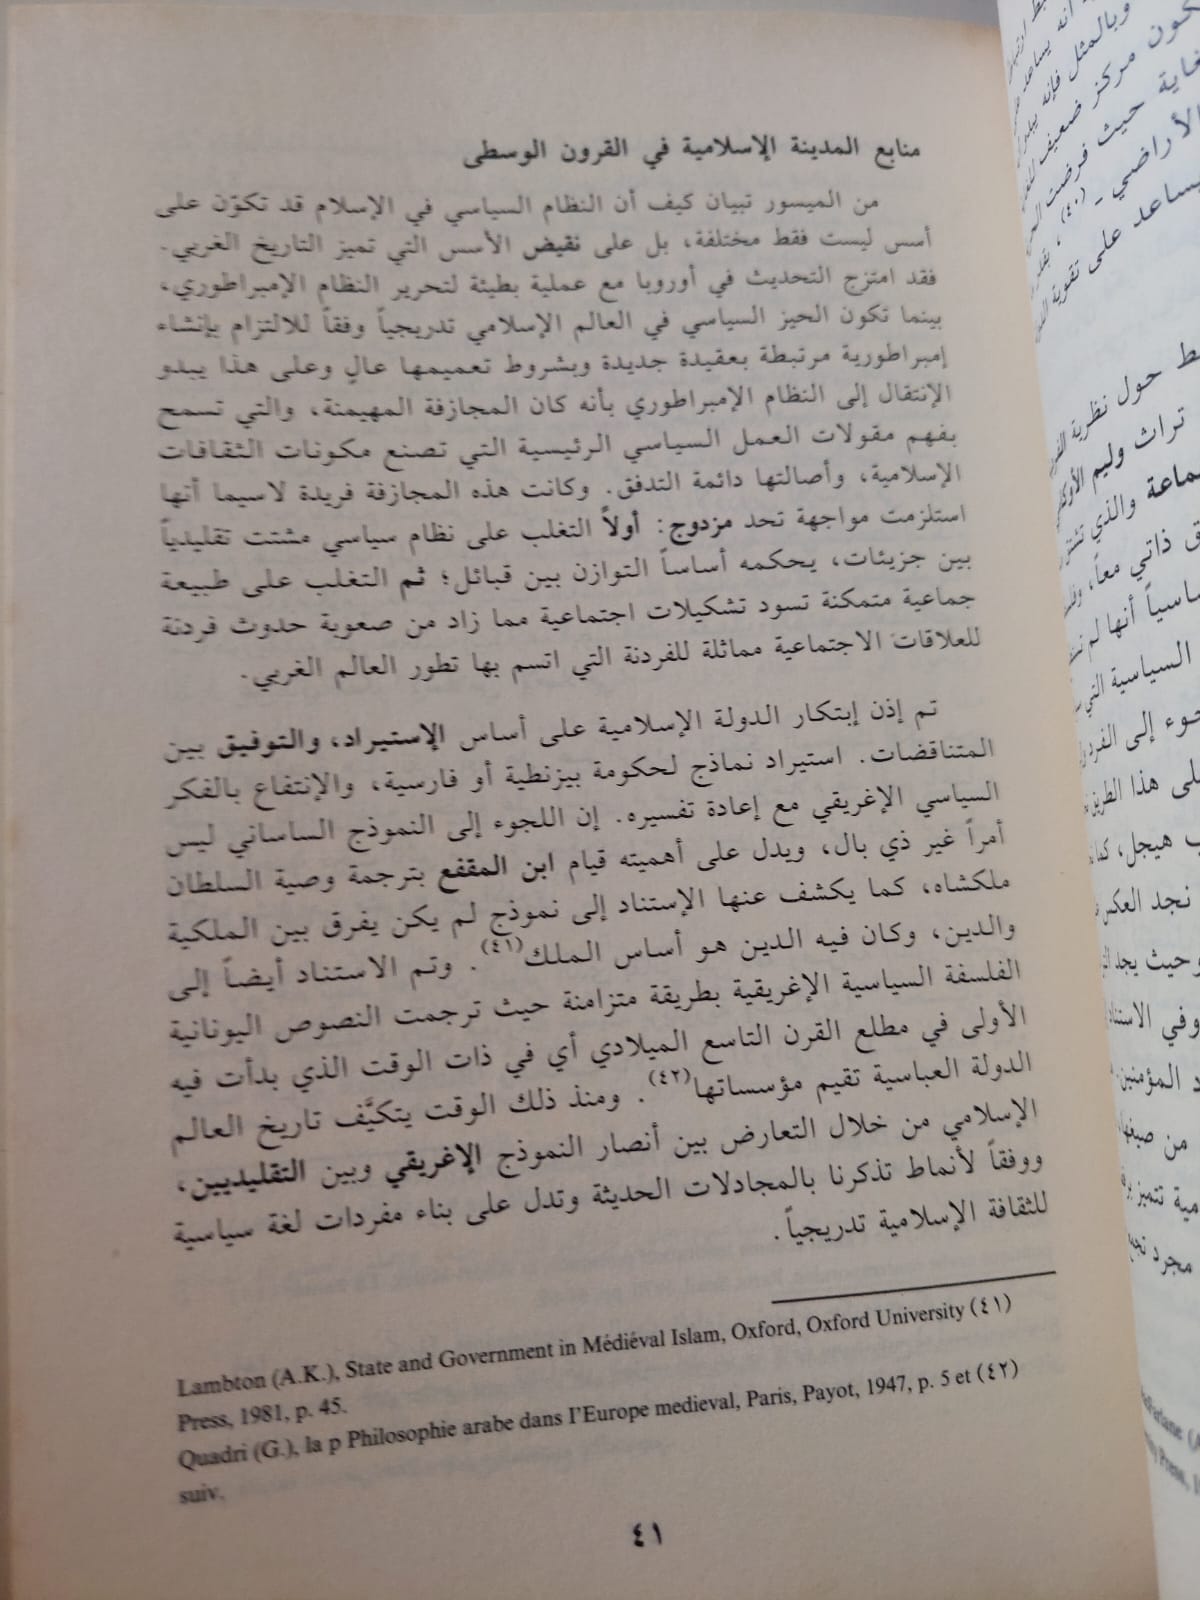 منابع المدينة الإسلامية في القرون الوسطى
من الميسور تبيان كيف أن النظام السياسي في الإسلام قد تكوّن على
أسس ليست فقط مختلفة، بل على نقيض الأسس التي تميز التاريخ الغربي.
فقد امتزج التحديث في أوروبا مع عملية بطيئة لتحرير النظام الإمبراطوري،
بينما تكون الحيز السياسي في العالم الإسلامي تدريجياً وفقاً للالتزام بإنشاء
إمبراطورية مرتبطة بعقيدة جديدة وبشروط تعميمها عالٍ وعلى هذا يبدو
الإنتقال إلى النظام الإمبراطوري بأنه كان المجازفة المهيمنة، والتي تسمح
بفهم مقولات العمل السياسي الرئيسية التي تصنع مكونات الثقافات
الإسلامية، وأصالتها دائمة التدفق. وكانت هذه المجازفة فريدة لاسيما أنها
استلزمت مواجهة تحد مزدوج: أولاً التغلب على نظام سياسي مشتت تقليدياً
بين جزيئات، يحكمه أساساً التوازن بين قبائل؛ ثم التغلب على طبيعة
جماعية متمكنة تسود تشكيلات اجتماعية مما زاد من صعوبة حدوث فردنة
للعلاقات الاجتماعية مماثلة للفردنة التي اتسم بها تطور العالم الغربي.
تم إذن إبتكار الدولة الإسلامية على أساس الإستيراد، والتوفيق بين
المتناقضات. استيراد نماذج لحكومة بيزنطية أو فارسية، والإنتفاع بالفكر
السياسي الإغريقي مع إعادة تفسيره. إن اللجوء إلى النموذج الساساني ليس
أمراً غير ذي بال، ويدل على أهميته قيام ابن المقفع بترجمة وصية السلطان
ملكشاه، كما يكشف عنها الإستناد إلى نموذج لم يكن يفرق بين الملكية
والدين، وكان فيه الدين هو أساس الملك(٤١). وتم الاستناد أيضاً إلى
الفلسفة السياسية الإغريقية بطريقة متزامنة حيث ترجمت النصوص اليونانية
الأولى في مطلع القرن التاسع الميلادي أي في ذات الوقت الذي بدأت فيه
الدولة العباسية تقيم مؤسساتها(٤٢). ومنذ ذلك الوقت يتكيَّف تاريخ العالم
الإسلامي من خلال التعارض بين أنصار النموذج الإغريقي وبين التقليديين،
ووفقاً لأنماط تذكرنا بالمجادلات الحديثة وتدل على بناء مفردات لغة سياسية
للثقافة الإسلامية تدريجياً.
Lambton (A.K.), State and Government in Médiéval Islam, Oxford, Oxford University (٤١)
Press, 1981, p. 45.
Quadri (G.), la p Philosophie arabe dans I'Europe medieval, Paris, Payot, 1947, p. 5 et (٤٢)
suiv.
٤١
كون مركز ضعيف
غاية حيث فرضت
الأراضي - (٤٠)
يساعد على تقوية
حول نظرية
تراث وليم
والذي
ذاتي معاً،
أنها لم
السياسية التي
إلى
على هذا الطريق
هيجل،
نجد العكس
وحيث يجد
وفي
المؤمنين
من
تتميز
مجرد